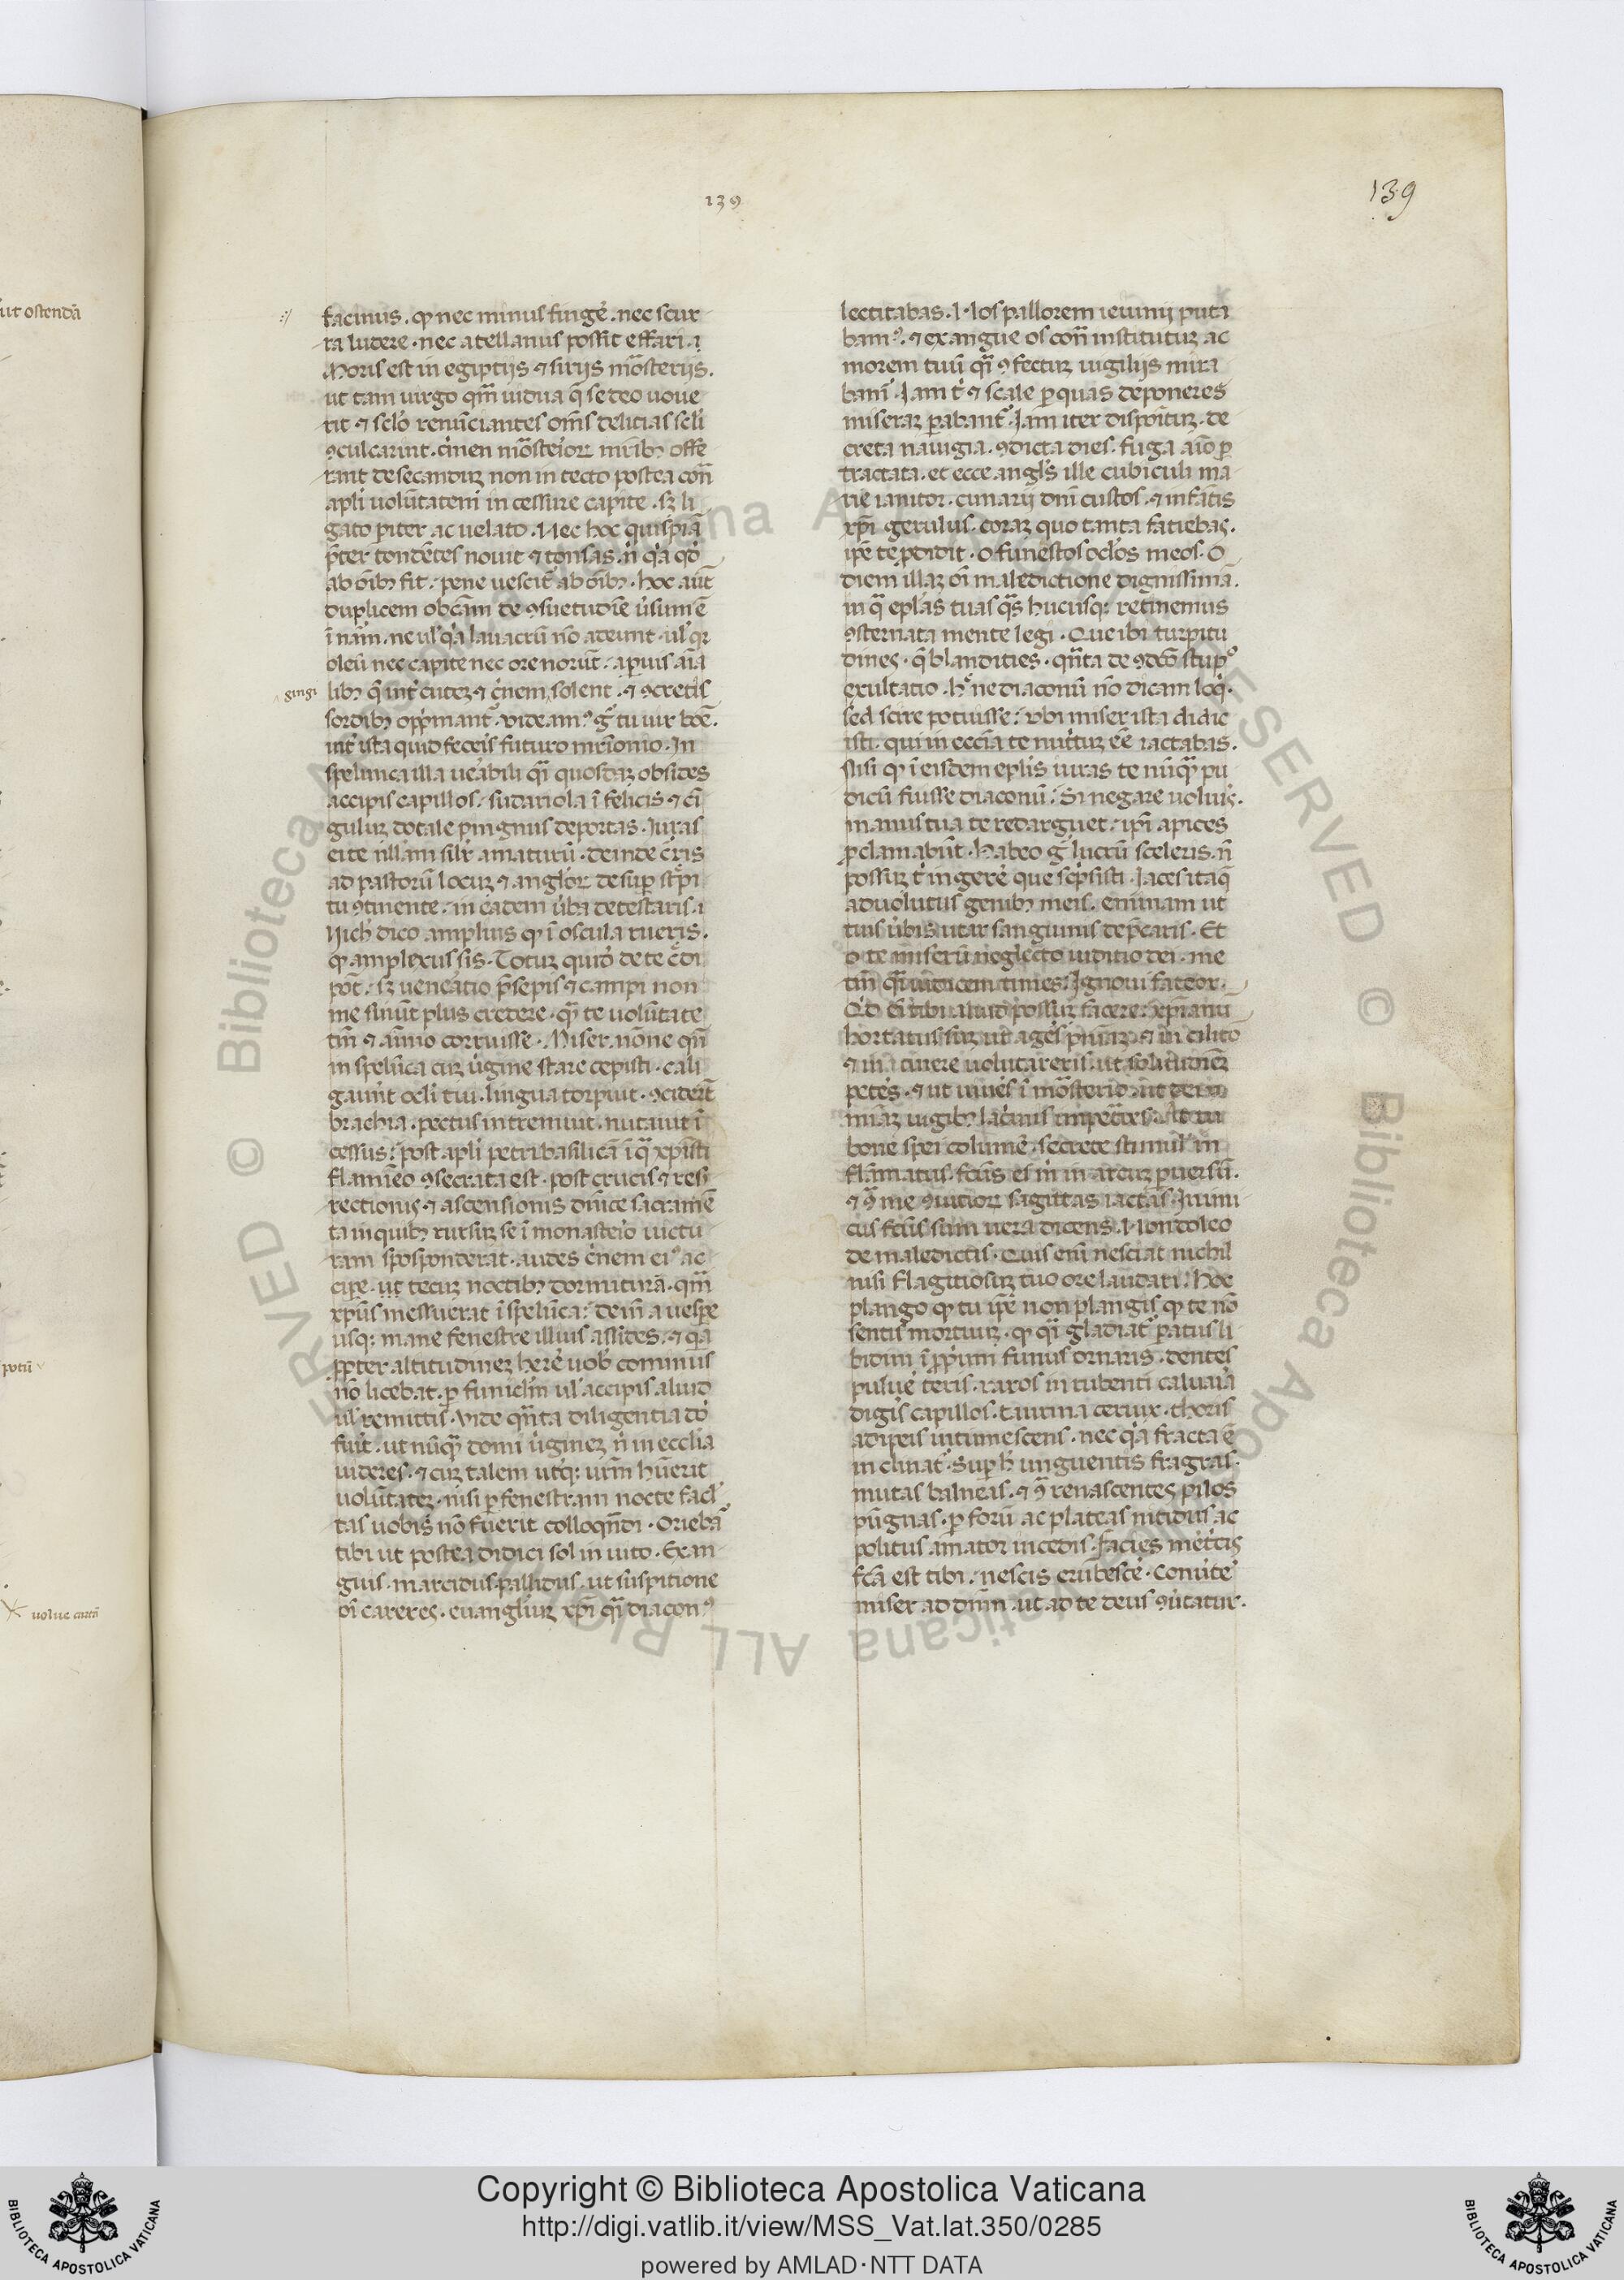 139
139
facinus. ꝙ nec minus fingẻ. nec scur
ra ludere. nec atellanus possit effari.
Moris est in egiptijs ⁊ sirijs mōsterijs.
ut tam uirgo qm̄ uidua q̄ se deo uoue
rit ⁊ sclo renūciantes om̄s delicias scli
ꝯculcarint. c̓nem mōsteior mrib; offe
rant desecandūz non in tecto postea con̄
apli uolūtatem in cessure capite. sz li
gato piter ac uelato. Nec hoc quispiā
p̄ter tondētes nouit ⁊ tonsas. n̄ qa qd
ab oīb; fit. pene uescit̄ ab oīb;. hoc aūt
duplicem obcām de ꝯsuetudīe uersum ē
ī nām. ne ul̓ qa lauacrū nō adeunt. ul̓ qr
oleū nec capite nec ore norūt. aparuis aīa
gingi
lib; q̄ int̓ cutez ⁊ c̓nem solent. ⁊ ꝯcretis
sordib; opp̓mant̓. videam̓ g̊ tu uir boē.
int̓ ista quid feceis futuro mr̄ionio. In
spelunca illa ueābili qͣi quosdaz obsides
accipis capillos. sudariola ī felicis ⁊ cī
gulūz dotale pingnus deportas. Iuras
ei te nllam silr̓ amaturū. deinde c̄ris
ad pastorū locuz ⁊ anglor desup st̓pi
tu ꝯtinente. in eadem ūba detestaris.
Nich̓ dico amplius ꝙ ī oscula rueris.
ꝙ amplexus sis. Totuz quid̓ de te c̄di
pōt. sz ueneātio p̄sepis ⁊ campi non
me sinūt plus credere. qͣ te uolūtate
tm̄ ⁊ aīmo corruisse. Miser. nōne qn̄
in spelūca cuz ūgine stare cepisti. cali
gauīt ocli tui. lingua torpuit. ꝯciderūt
brachia. pectus intremuit. nutauit ī
cessus. post apli petri basilicā ī qͣ xp̄isti
flamīeo ꝯsecrata est. post crucis ⁊ resr
rectionis ⁊ ascensionis dnīce sacramē
ta in quib; rursuz se ī monasteio uictu
ram sposponderat. audes c̓nem ei̓ ac
cipe. ut tecuz noctib; dormiturā. qm̄
xp̄us messuerat ī spelūca. dein̄ a uespe
usq; mane fenestre illius assides. ⁊ qa
ꝓpter altitudinez herē uob cominus
nō licebat. ꝑ funiclm̄ ul̓ accipis aliud
ul̓ remittis. vide qn̄ta diligentia do
fuit. ut nūqͣ domi ūginez n̄ in ecclia
uideres. ⁊ cuz talem utq; urm̄ hūerit
uolūtatez. nisi ꝑ fenestram nocte facl̓
tas uobis nō fuerit colloqn̄di. Oriebat̄
tibi ut postea didici sol in uito. Exan
guis. marcidus pallidus. ut suspitione
oī careres. euangliuz xp̄i qͣi diacon̓
lectitabas. Nos pallorem ieiunij puta
bam̓. ⁊ exangue os con̄ institutuz ac
morem tuū qͣi ꝯfectuz uigilijs mira
bam̓. Iam t̓ ⁊ scale ꝑ quas deponeres
miseraz ꝑabant̓. Iam iter dispoītuz. de
creta nauigia. ꝯdicta dies. fuga aīo ꝑ
tractata. et ecce angl̓s ille cubiculi ma
rie ianitor. cunarij dni custos. ⁊ infātis
xp̄i gerulus. coraz quo tanta faciebas.
ip̄e te pdidit. O funestos oclos meos. O
diem illaz oī maledictione dignissimā.
in qͣ epl̓as tuas qͣs hucusq; retinemus
ꝯsternata mente legi. Que ibi turpitu
dines. q̄ blandities. qn̄ta de ꝯdcō stup̓
exultatio. H̊ ne diaconū nō dicam loq̓.
sed scire potuisse. vbi miser ista didic
isti. qui in eccia te nut̓tuz eē iactabas.
Nisi ꝙ ī eisdem epl̓is iuras te nūqͣ pu
dicū fuisse diaconū. Si negare uolu̓is.
manus tua te redarguet. ip̄i apices
ꝓclamabūt. Habeo g̊ lucrū sceleris. n̄
possuz t̓ ingere̓ que sc̓psisti. Iaces itaq̄
aduolutus genib; meis. eminam ut
tuis ūbis utar sanguinis dep̄caris. Et
o te miserū neglecto iuditio dei. me
tm̄ qͣi iudicem times. Ignoui fateor.
Qd ēī tibi aliud possuz facere. xp̄ianū
hortatus suz ut ages pn̄iaz ⁊ in cilitio
⁊ in cinere uolutareris. ut solitudinēz
petes. ⁊ ut uiues ī mōsterio. ut dei
miāz iugib; lac̓mis impetͣres. At tu
bone spei columē. secrete stimul̓ in
flāmatus. fcūs es m̓ in arcuz puersū.
⁊ ꝯͣ me ꝯuitior sagittas iactas. Inimi
cus fcūs sum uera dicens. Non doleo
de maledictis. Quis enī nesciat nichil
nisi flagitiosuz tuo ore laudari. Hoc
plango ꝙ tu ip̄e non plangis ꝙ te nō
sentis mortuuz. ꝙ qͣi gladiat̓ patus li
bidini ī ꝓp̓um funus ornaris. dentes
puluē teris. raros in rubenti caluaīa
digis capillos. taurina ceruix. thoris
adipeis intumescens. nec qa fracta ē
inclinat̓. Sup h̓ unguentis fragras.
mutas balneas. ⁊ ꝯͣ renascentes pilos
pūgnas. ꝑ forū ac plateas nitidus ac
politus amator incedis. facies meret̓cis
fcā est tibi. nescis erubesce̓. Conuēte̓
miser ad dnm̄. ut ad te deus ꝯūtatur.
ut ostendā
potiū
uolue cartā
Copyright © Biblioteca Apostolica Vaticana
http://digi.vatlib.it/view/MSS_Vat.lat.350/0285
powered by AMLAD·NTT DATA
BIBLIOTECA APOSTOLICA VATICANA
BIBLIOTECA APOSTOLICA VATICANA